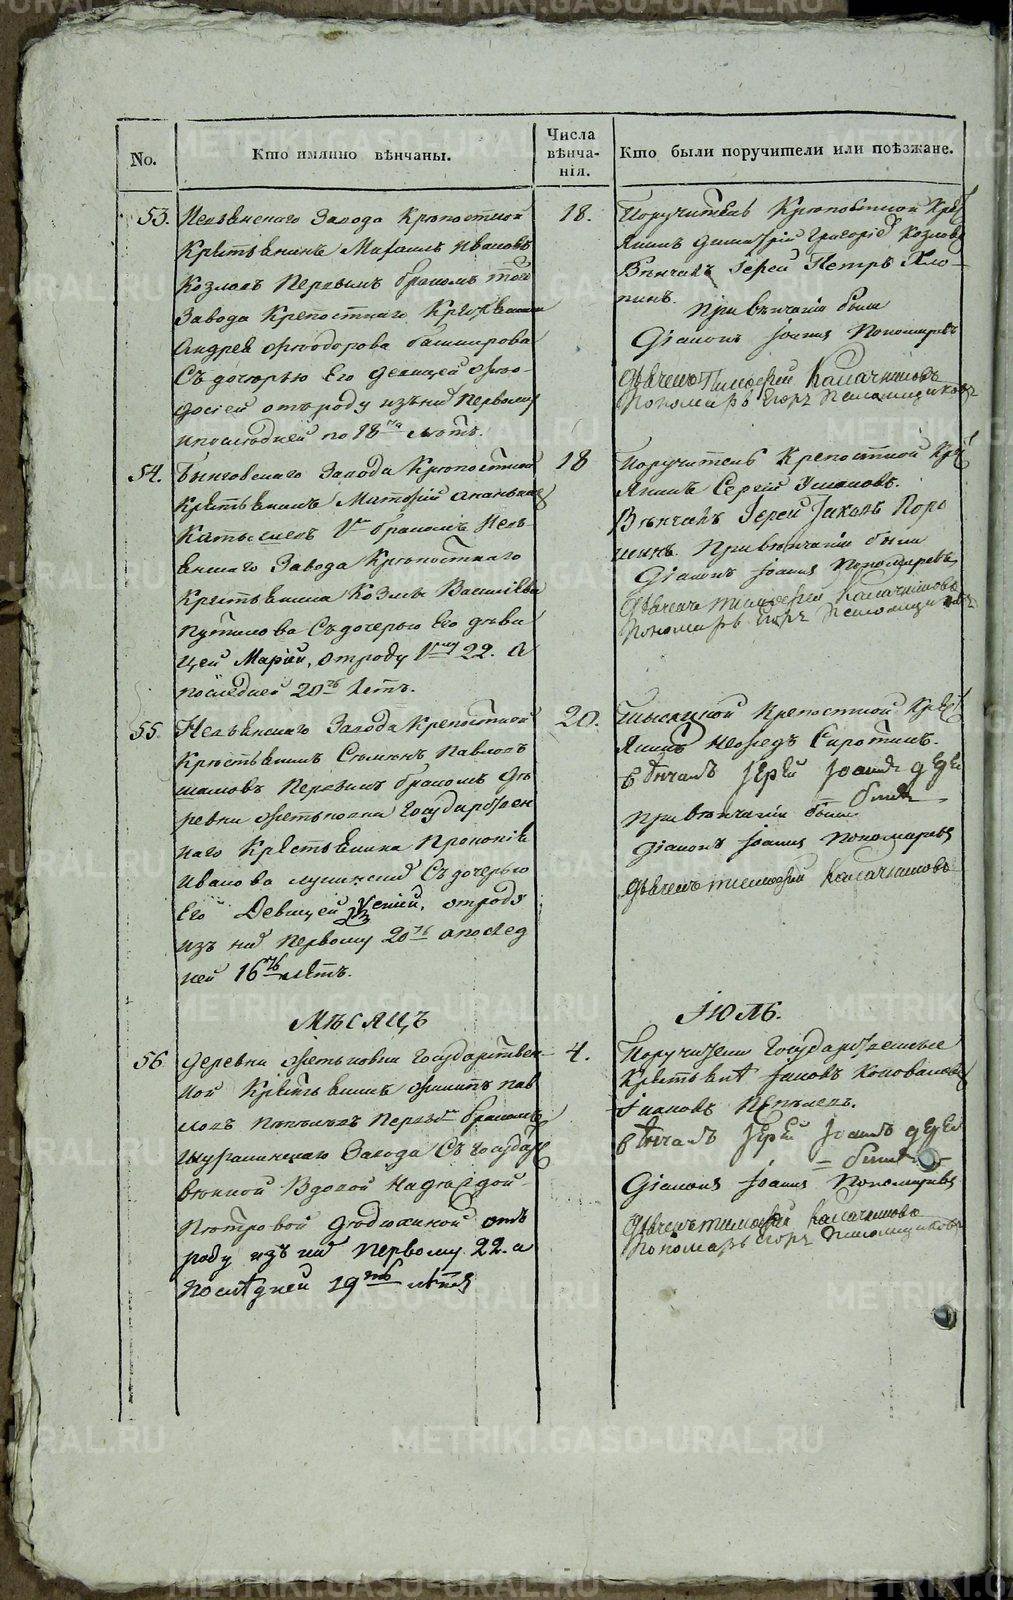 No.
Кто имянно вѣнчаны.
Числа
вѣнча-
нія.
Кто были поручители или поѣзжане.
53. Невьянскаго Завода Крѣпостной
Крестьянинъ Михаилъ Ивановъ
Козловъ Первымъ бракомъ того
Завода Крепостнаго Крестьянина
Андрея Ѳеодорова башкирова
Съ дочерью Его девицей Ѳео-
досіей отъ роду изъ них Первому
и последней по 18 лѣтъ.
18.
Поручитель Крепостной Крес
Янинъ Димитрій Григорьев Козловъ
Вѣнчалъ Іерей Петръ Хло-
пинъ.
При вѣнчаніи были
Діаконъ Іоаннъ Пономаревъ
Дьячекъ Тимофей Калачниковъ
Пономарь Егоръ
54. Быньговскаго Завода Крѣпостной
Крестьянинъ Матвей Ананьинъ
бракомъ Невь-
янскаго Завода Крѣпостнаго
Крестьянина Козмы Васильева
Путилова Съ дочерью Его дѣви
цей Марией, отроду 22. а
последней 20 летъ.
18
Поручитель Крепостной Кре
Янинъ Сергей Ушаковъ.
Вѣнчалъ Іерей Іаковъ Коро
При вѣнчаніи были
Діаконъ Іоаннъ Пономаревъ
Дьячекъ Тимофей Калачниковъ
Пономарь Егоръ
55. Невьянскаго Завода Крепостной
Крестьянинъ Семенъ Павловъ
Первымъ бракомъ де
ревни Государствен
наго Крестьянина Прокопія
Иванова Съ дочерью
Его Девицей отроду
изъ них Первому 20 а послед
ней 16 лѣтъ.
20.
Тысяцкой Крепостной Крес
Янинъ Сиротинъ.
вѣнчалъ Іерей Іоаннъ
При вѣнчаніи были
Діаконъ Іоаннъ Пономаревъ
Дьячекъ Тимофей Калачниковъ
Мѣсяцъ
Іюль.
56 Деревни Государствен-
ной Крестьянинъ Филипъ Пав
ловъ Первым бракомъ
Шуралинскаго Завода Съ Государс
венной Вдовой Надеждой
Петровой отъ
роду изъ них Первому 22. а
последней 19 лѣтъ
4.
Поручители Государственные
Крестьяне Іаковъ Коноваловъ
Іаковъ
вѣнчалъ Іерей Іоаннъ
Діаконъ Іоаннъ Пономаревъ
Дьячекъ Тимофей Калачниковъ
Пономарь Егоръ
METRIKI.GASO-URAL.RU